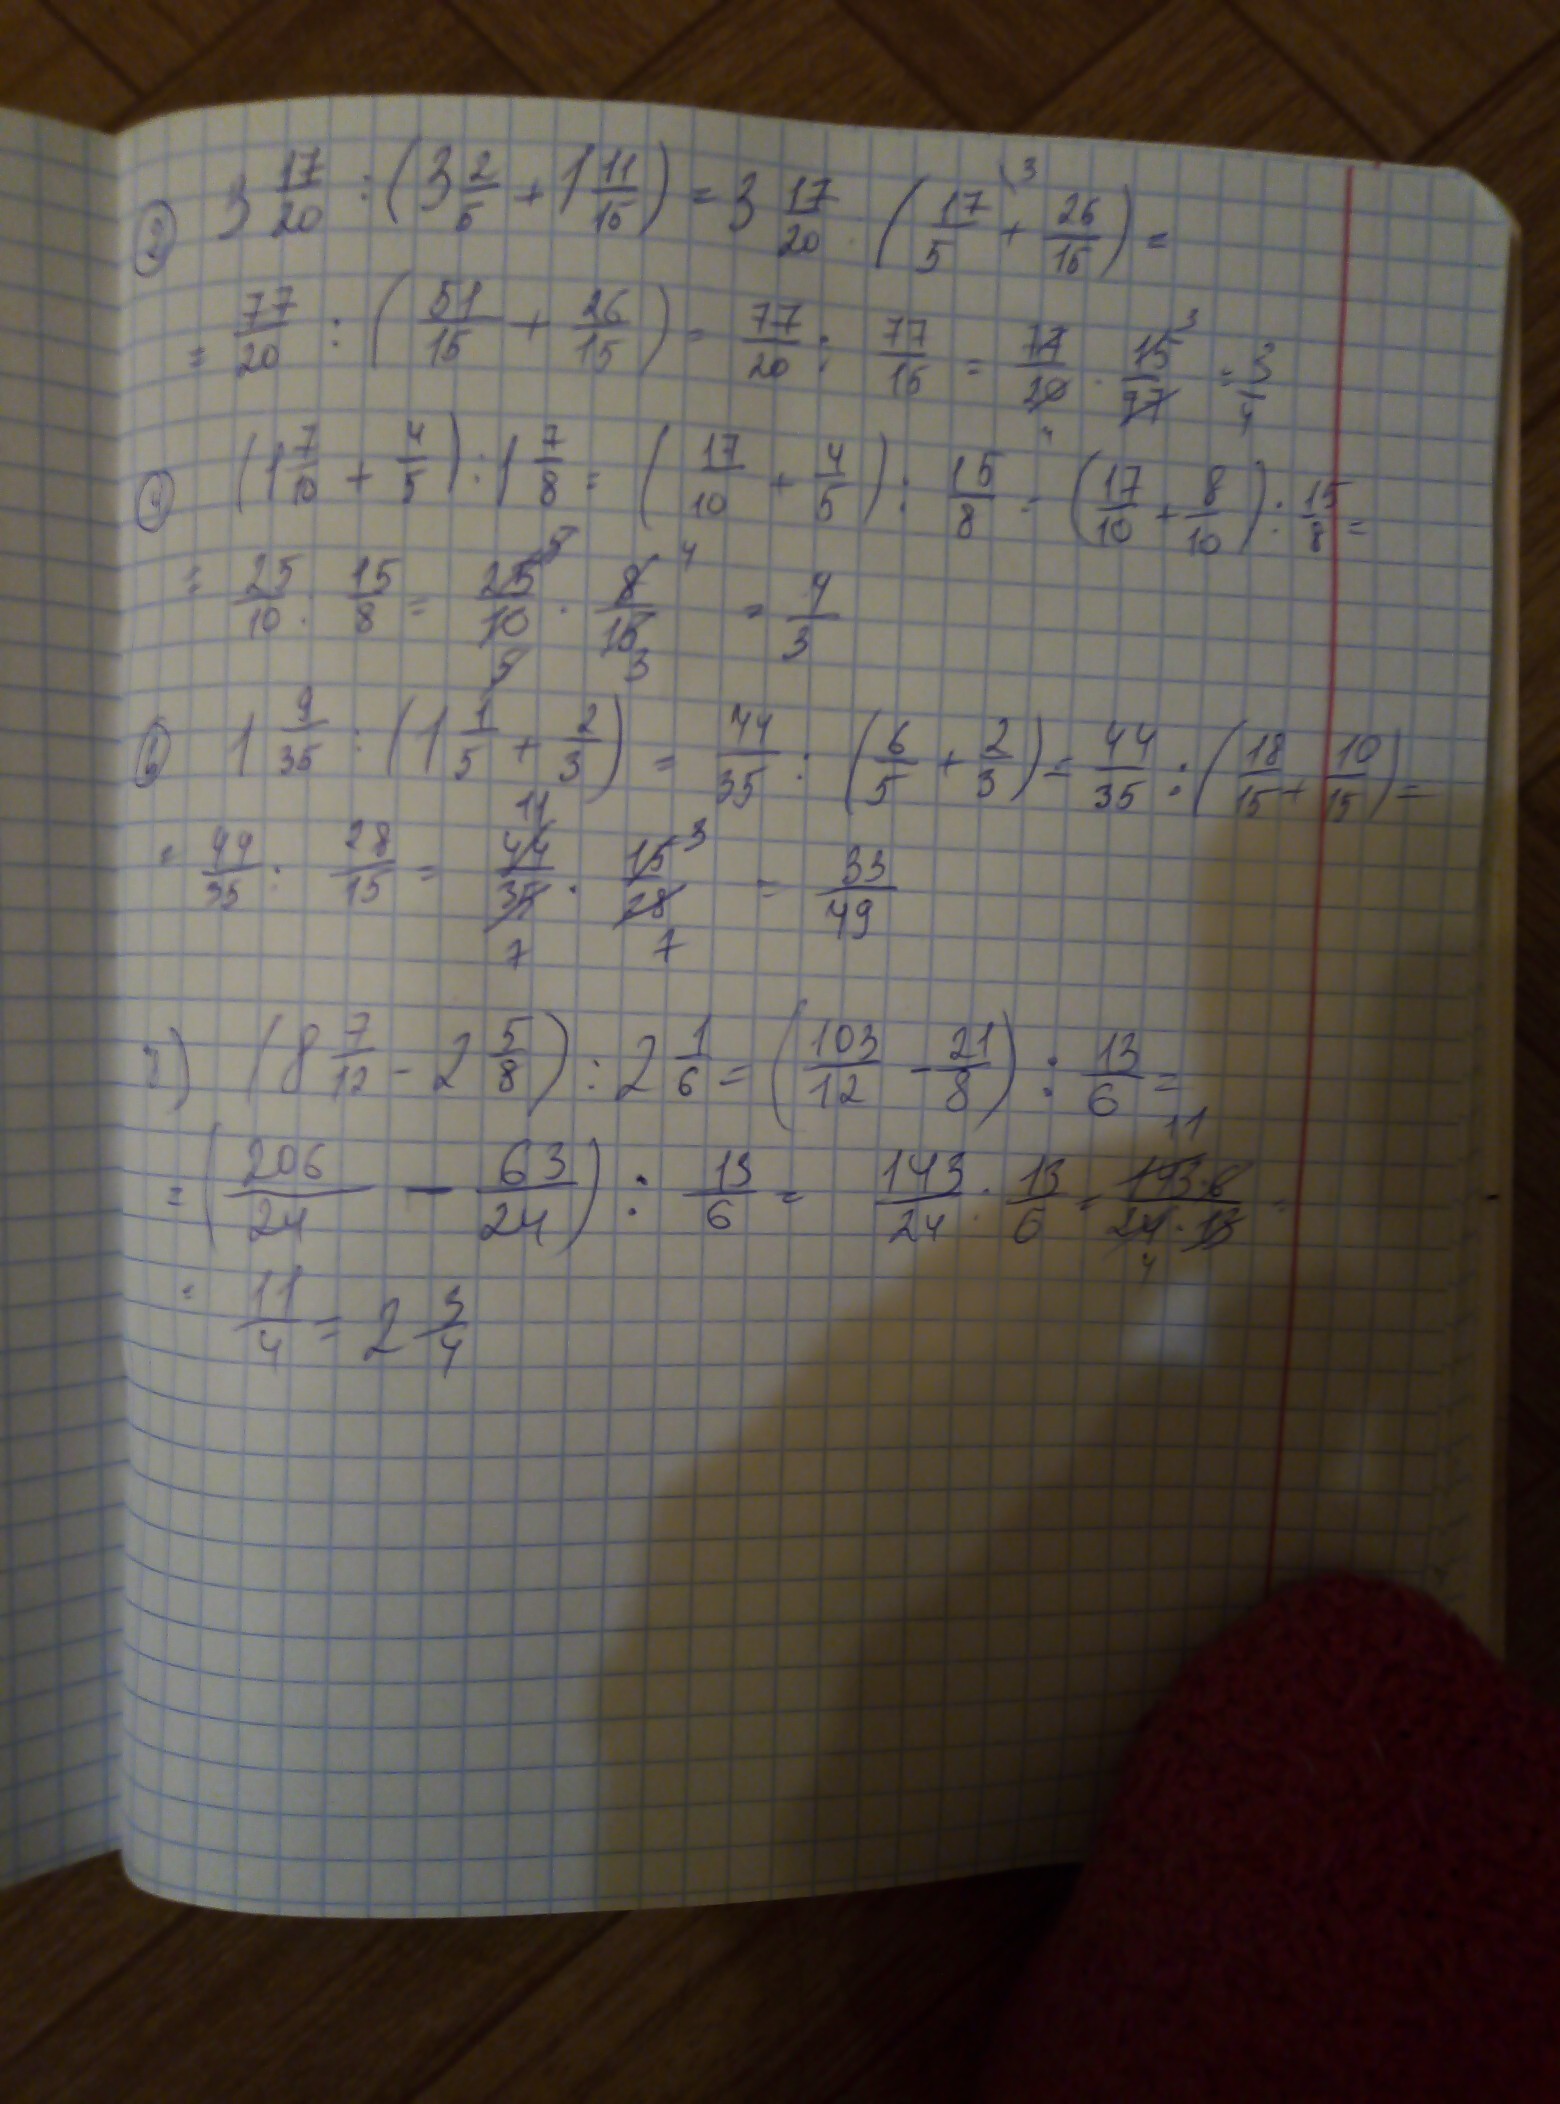 2) 3 17/20 : (3 2/5 + 1 11/15) = 3 17/20 · (17/5 \3 + 26/15) =
= 77/20 : (51/15 + 26/15) = 77/20 : 77/15 = 77/20 4 · 15 3/77 = 3/4
4) (1 7/10 + 4/5) : 1 7/8 = (17/10 + 4/5) : 15/8 = (17/10 + 8/10) : 15/8 =
= 25/10 : 15/8 = 25 5/10 5 · 8 4/15 3 = 4/3
6) 1 9/35 : (1 1/5 + 2/3) = 44/35 : (6/5 + 2/3) = 44/35 : (18/15 + 10/15) =
= 44/35 : 28/15 = 44 11/35 7 · 15 3/28 7 = 33/49
7) (8 7/12 - 2 5/8) : 2 1/6 = (103/12 - 21/8) : 13/6 =
= (206/24 - 63/24) : 13/6 = 143/24 : 13/6 = 143 11 · 6/24 4 · 13 =
= 11/4 = 2 3/4